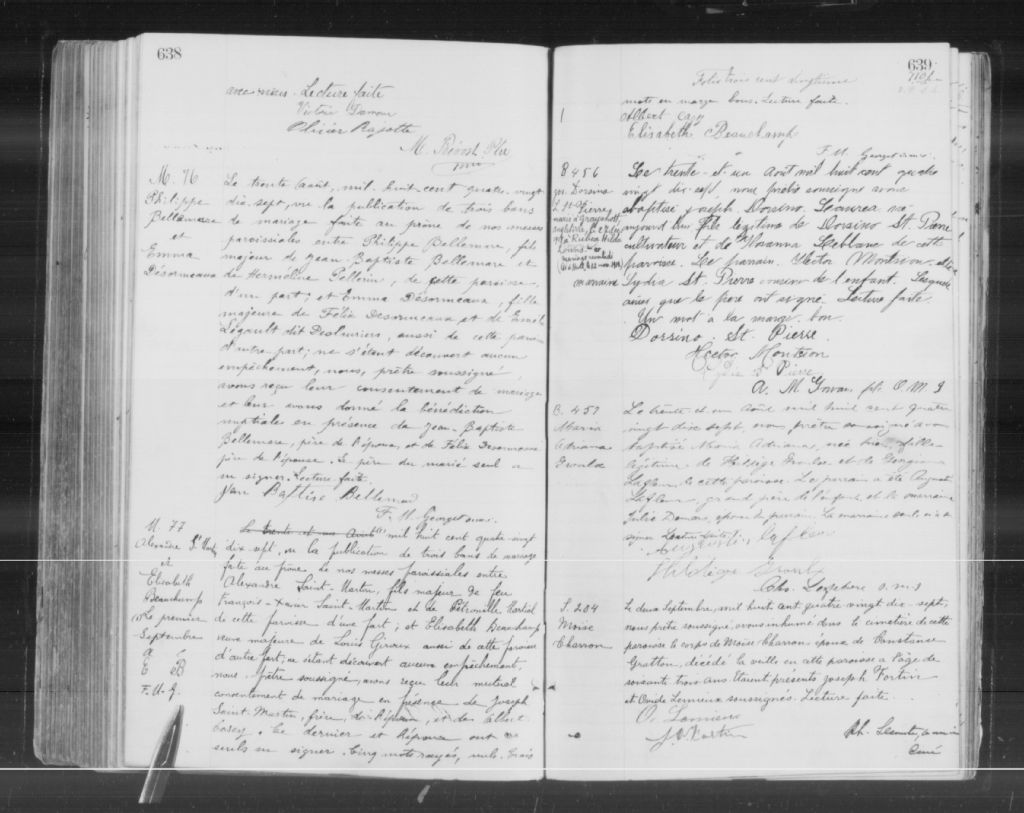 638
avec nous. Lecture faite
Victoire Damour
Olivier Rajotte
M. Prévost Ptre
M. 76
Philippe
Bellemare
et
Emma
Désormeaux
Le trente Août, mil huit cent quatre-vingt
dix-sept, vu la publication de trois bans
de mariage faite au prône de nos messes
paroissiales entre Philippe Bellemare, fils
majeur de Jean-Baptiste Bellemare et
de Herméline Pellerin, de cette paroisse,
d'une part; et Emma Désormeaux, fille
majeure de Félix Desormeaux et de
Légault dit Deslauriers, aussi de cette paroisse
d'autre part; ne s'étant découvert aucun
empêchement, nous, prêtre soussigné
avons reçu leur consentement de mariage
et leur avons donné la bénédiction
nuptiale en présence de Jean-Baptiste
Bellemare, père de l'époux, et de Félix Desormeaux
père de l'épouse. Le père du marié seul a
su signer. Lecture faite.
Jean Baptiste Bellemare
F. M. Georget
M. 77
Alexandre St Martin
et
Elisabeth
Beauchamp
Le premier
Septembre
A C
E B
F. M. G.
Le trente et un Août mil huit cent quatre-vingt
dix-sept, vu la publication de trois bans de mariage
faite au prône de nos messes paroissiales entre
Alexandre Saint-Martin, fils majeur de feu
François-Xavier Saint-Martin et de Pétronille Martial
de cette paroisse d'une part; et Elisabeth Beauchamp
veuve majeure de Louis Giroux aussi de cette paroisse
d'autre part; ne s'étant découvert aucun empêchement,
nous, prêtre soussigné, avons reçu leur mutuel
consentement de mariage en présence de Joseph
Saint-Martin, frère, de l'époux, et de Albert
Casey. Ce dernier et l'épouse ont
seuls su signer. Cinq mots rayés, nuls. trois
639
Folio trois cent vingtième
mots en marge bons. Lecture faite.
Albert Casy
Elisabeth Beauchamp
F. M. Georget
B 456
m. Dorsino
L. St-Pierre
marié à
Le trente-et-un Août mil huit cent quatre
vingt dix-sept, nous prêtre soussigné avons
baptisé Joseph Dorsino né
aujourd'hui fils légitime de Dorsino St. Pierre
cultivateur et de Rosanna Leblanc de cette
paroisse. Le parrain Hector Montsion
marraine
Lydia St. Pierre cousine de l'enfant. Lesquels
ainsi que le père ont signé. Lecture faite.
Un mot à la marge bon.
Dorsino St. Pierre
Hector Montsion
St Pierre
A. M. Gowan ptr. O. M. I
B. 457
Maria
Adriana
Groulx
Le trente et un Août mil huit cent quatre
vingt dix sept, nous, prêtre soussigné avons
baptisé Maria Adriana, née hier, fille
légitime de Hildège Groulx et de Georgina
Lafleur de cette paroisse. Le parrain a été Augustin
Lafleur, grand père de l'enfant, et la marraine
Julie épouse du parrain. La marraine seule n'a su
signer. Lecture faite.
Augustin Lafleur
Hildège Groulx
O. M. I
S. 204
Moïse
Charron
Le deux Septembre, mil huit cent quatre vingt dix-sept,
nous prêtre soussigné, avons inhumé dans le cimetière de cette
paroisse le corps de Moïse Charron époux de Constance
Gratton, décédé la veille en cette paroisse à l'âge de
soixante trois ans. Étaient présents Joseph Fortin
et Ovide Lemieux soussignés. Lecture faite.
O. Lemieux
J. Fortin
Curé